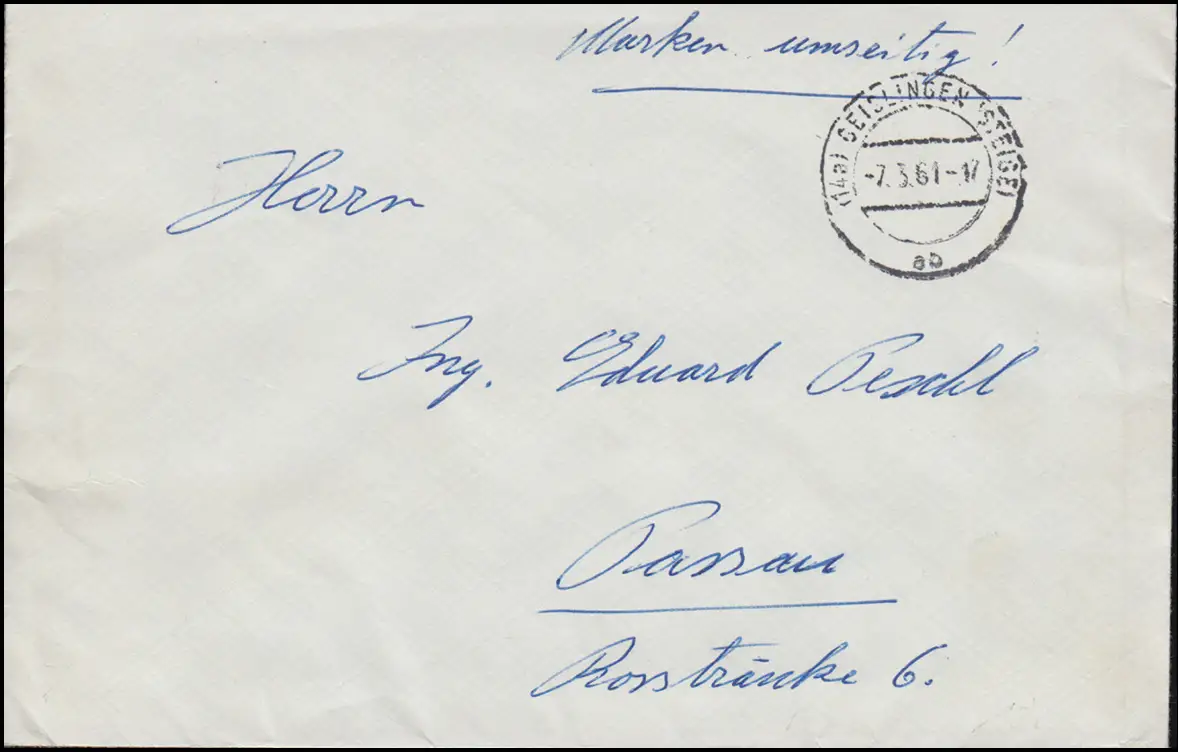 Marken umseitig!
(14a) GEISLINGEN (STEIGE)
-7.3.61-17
ab
Herrn
Ing. Eduard Peschl
Passau
Rosstränke 6.